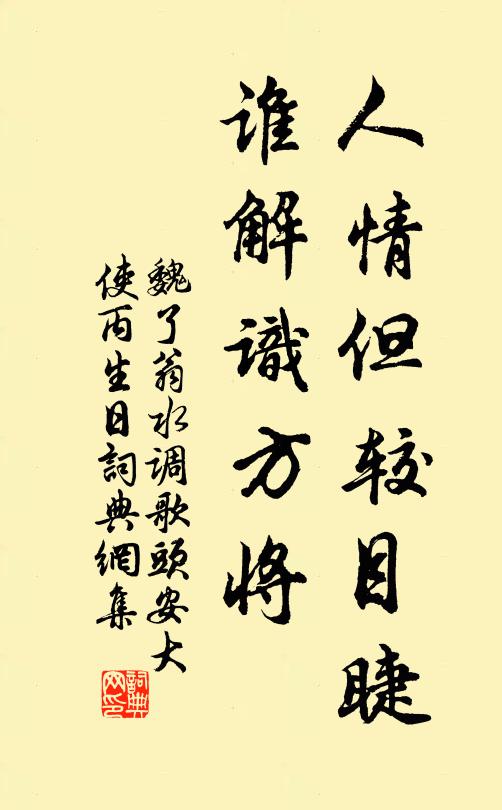 人情但较目睫
谁解識方将
魏了翁水调歌頭安大
使丙生日詞典網集
詞典网印